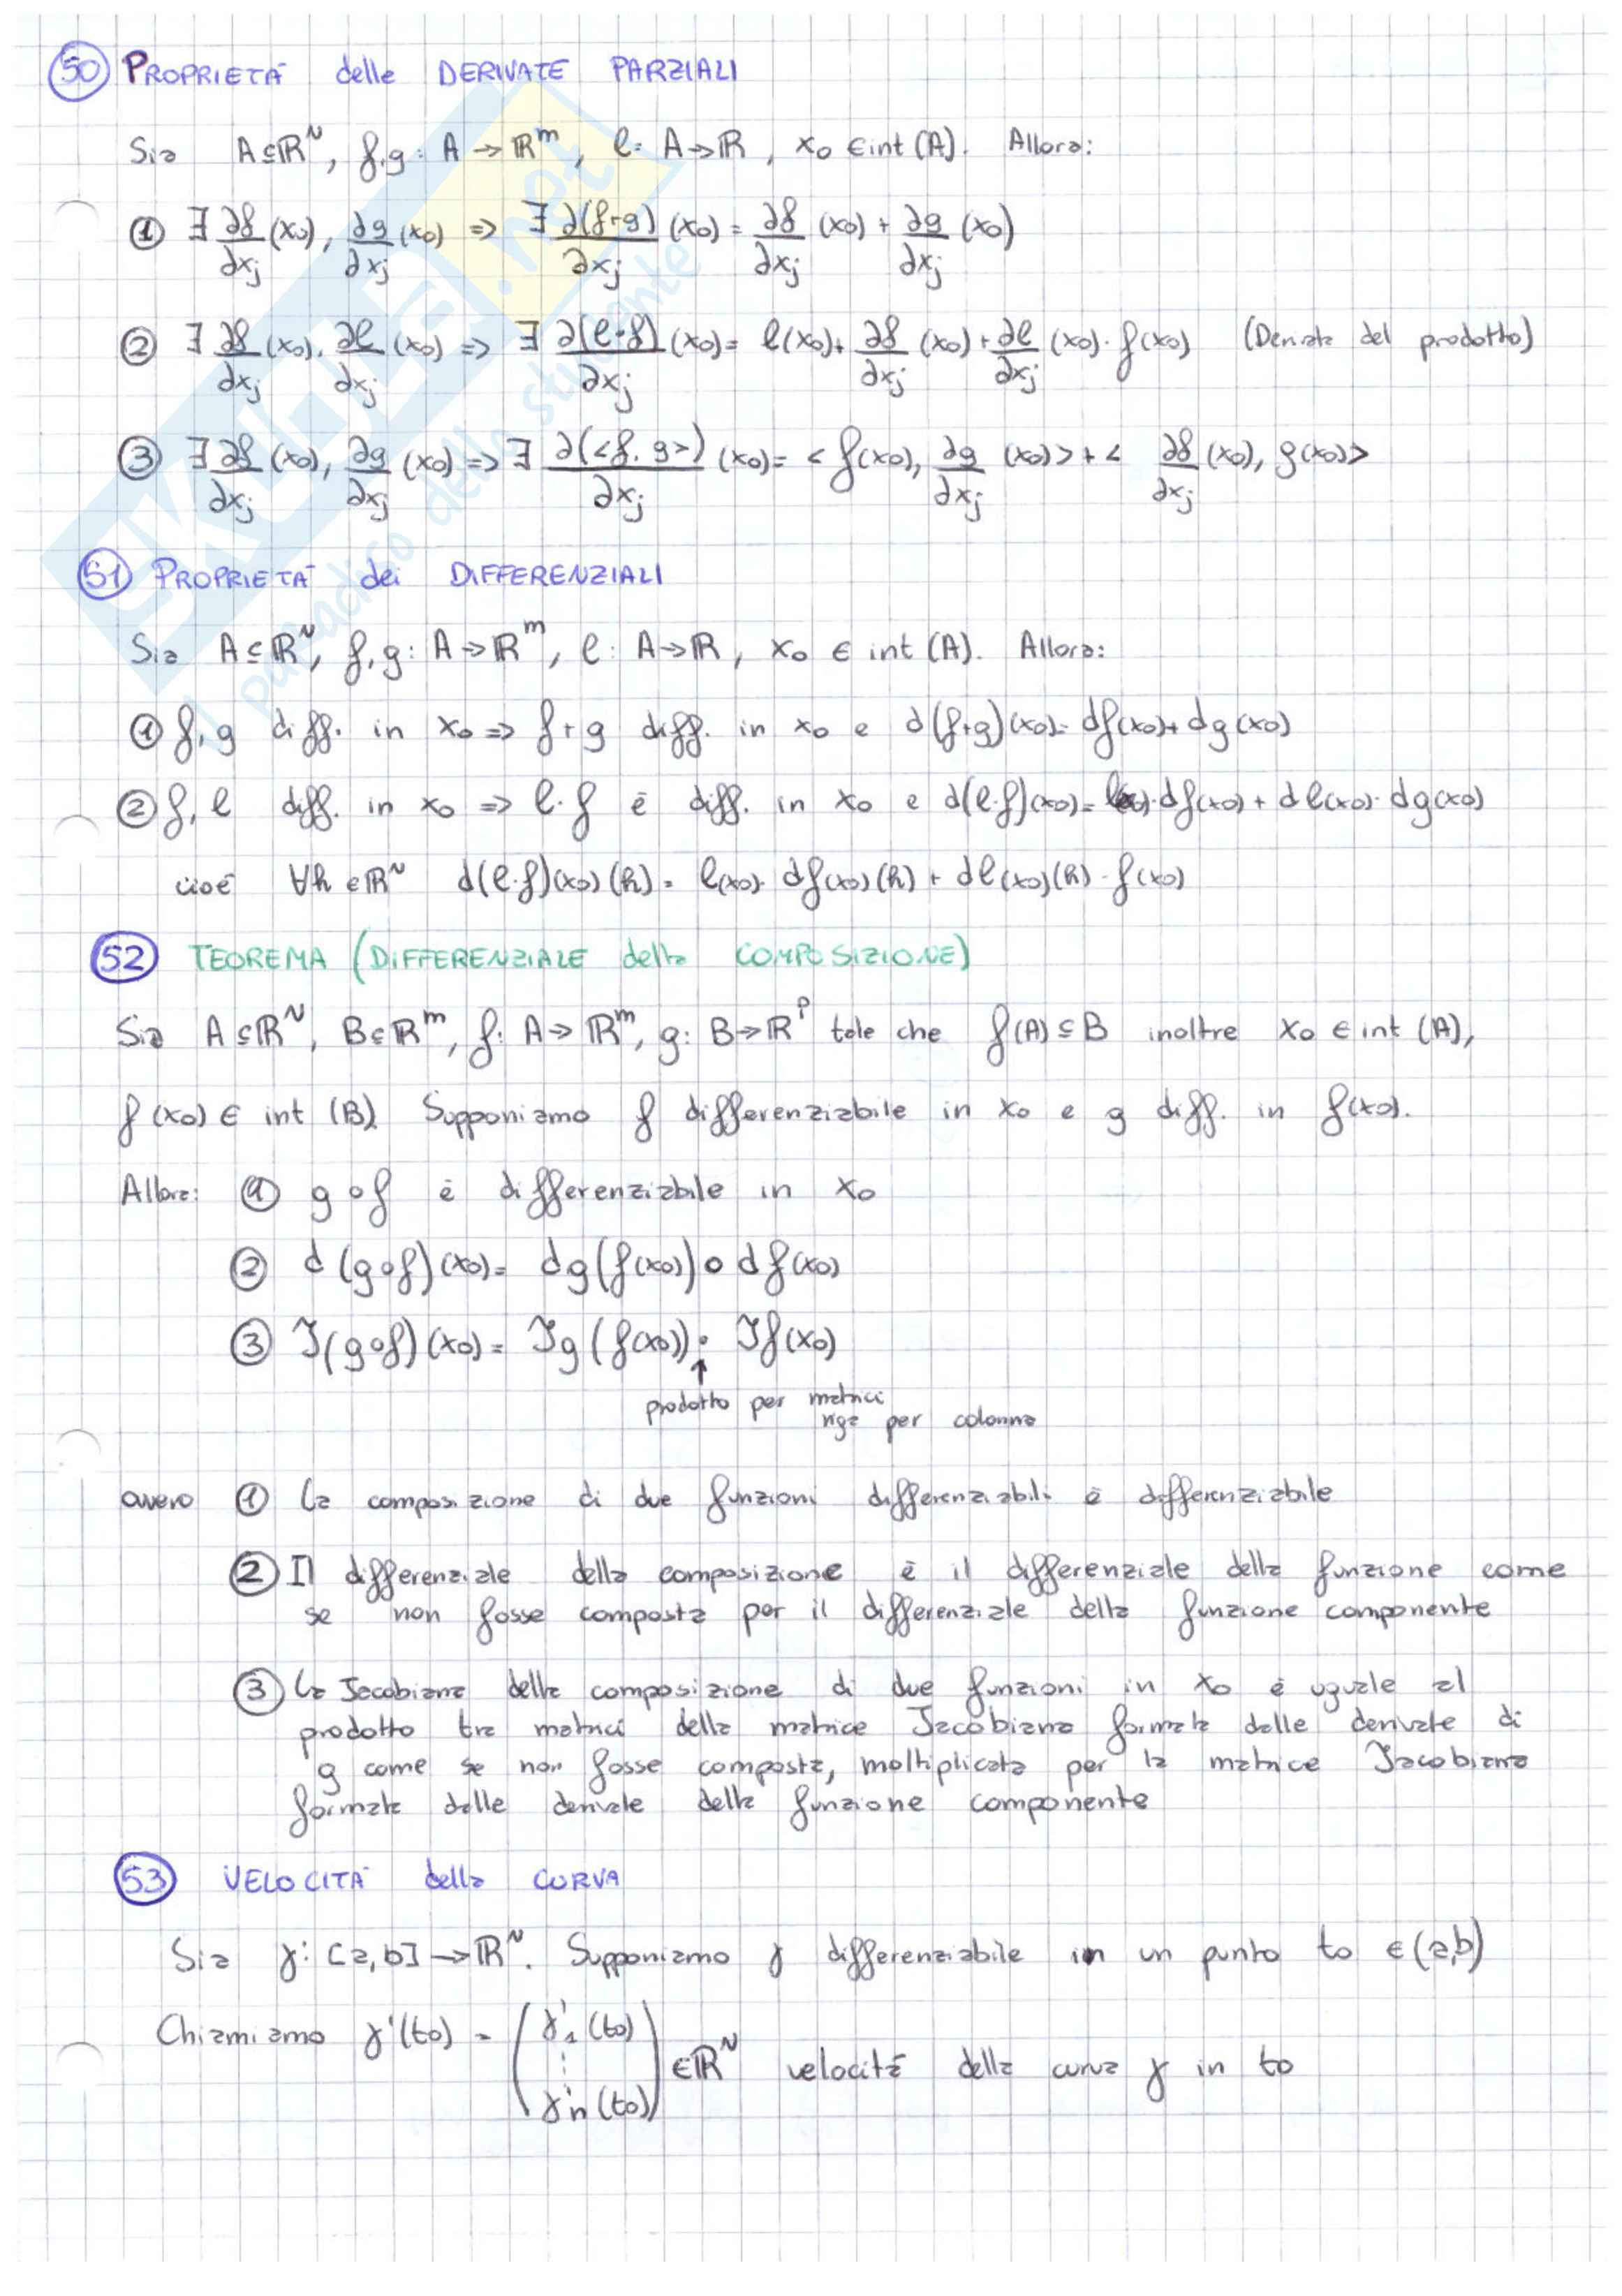 50 PROPRIETÀ delle DERIVATE PARZIALI
Sia A⊆ℝᴺ, f,g: A→ℝᵐ, l: A→ℝ, x₀ ∈ int(A). Allora:
① ∃ ∂f/∂xj (x₀), ∂g/∂xj (x₀) => ∃ ∂(f+g)/∂xj (x₀) = ∂f/∂xj (x₀) + ∂g/∂xj (x₀)
② ∃ ∂f/∂xj (x₀), ∂l/∂xj (x₀) => ∃ ∂(l·f)/∂xj (x₀) = l(x₀)· ∂f/∂xj (x₀) + ∂l/∂xj (x₀) · f(x₀) (Derivata del prodotto)
③ ∃ ∂f/∂xj (x₀), ∂g/∂xj (x₀) => ∃ ∂(<f, g>)/∂xj (x₀) = < f(x₀), ∂g/∂xj (x₀) > + < ∂f/∂xj (x₀), g(x₀) >
51 PROPRIETÀ dei DIFFERENZIALI
Sia A⊆ℝᴺ, f,g: A→ℝᵐ, l: A→ℝ, x₀ ∈ int(A). Allora:
① f,g diff. in x₀ => f+g diff. in x₀ e d(f+g)(x₀) = df(x₀) + dg(x₀)
② f, l diff. in x₀ => l·f è diff. in x₀ e d(l·f)(x₀) = l(x₀)·df(x₀) + dl(x₀)·dg(x₀)
cioè ∀h ∈ℝᴺ d(l·f)(x₀)(h) = l(x₀)· df(x₀)(h) + dl(x₀)(h) · f(x₀)
52 TEOREMA (DIFFERENZIALE della COMPOSIZIONE)
Sia A⊆ℝᴺ, B⊆ℝᵐ, f: A→ℝᵐ, g: B→ℝᴾ tale che f(A)⊆B inoltre x₀ ∈ int(A),
f(x₀) ∈ int (B). Supponiamo f differenziabile in x₀ e g diff. in f(x₀).
Allora: ① g∘f è differenziabile in x₀
② d(g∘f)(x₀) = dg(f(x₀)) ∘ df(x₀)
③ J(g∘f)(x₀) = Jg(f(x₀)) · Jf(x₀)
↑
prodotto per matrici
riga per colonna
ovvero ① La composizione di due funzioni differenziabili è differenziabile
② Il differenziale della composizione è il differenziale della funzione come
se non fosse composta per il differenziale della funzione componente
③ La Jacobiana della composizione di due funzioni in x₀ è uguale al
prodotto tra matrici della matrice Jacobiana formata dalle derivate di
g come se non fosse composta, moltiplicata per la matrice Jacobiana
formata dalle derivate della funzione componente
53 VELOCITÀ della CURVA
Sia γ: [a,b] → ℝᴺ. Supponiamo γ differenziabile in un punto t₀ ∈ (a,b)
Chiamiamo γ'(t₀) = ( γ'₁(t₀) ⋮ γ'n(t₀) ) ∈ℝᴺ velocità della curva γ in t₀
SKUOLA.net
il paradiso dello studente